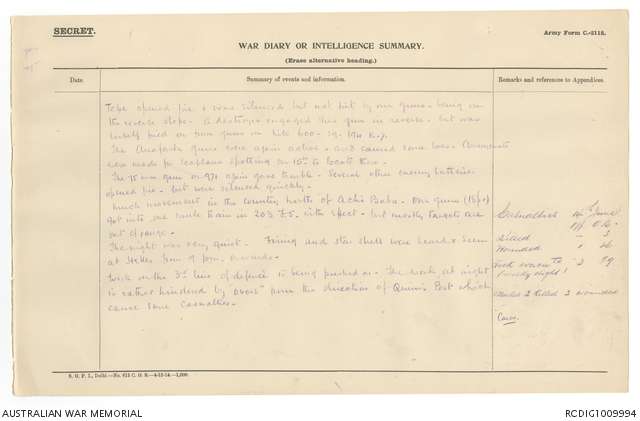 SECRET.
Army Form C.-2118.
WAR DIARY OR INTELLIGENCE SUMMARY.
(Erase alternative heading.)
Date.
Summary of events and information.
Remarks and references to Appendices.
opened fire & was silenced but not hit by our guns - being on
the reverse slope. A destroyer engaged this gun in reverse - but was
itself fired on from guns on hill 600
The Anafarta guns were again active - and caused some loss. Arrangements
were made for seaplane spotting on 15th to locate them.
The 75 mm gun on 971 again gave trouble. Several other enemy batteries
opened fire - but were silenced quickly.
Much movement in the country north of Achi Baba. One gun (18 pr)
got into one mule team in 203 Z.5. with effect - but mostly targets are
out of range.
The night was very quiet. Firing and star shells were heard & seen
at Helles from 9 pm. onwards.
Work on the 3rd line of defence is being pushed on. The work at night
is rather hindered by "overs" from the direction of Quinn's Post which
cause some casualties.
Casualties 14th June
Off. O.R.
Killed - 3
Wounded 1 26
(mostly slight)
2 killed 3 wounded
S. G. P. I., Delhi.—No. 615 C. G. S.—4-12-14.—1,000.
AUSTRALIAN WAR MEMORIAL
RCDIG1009994